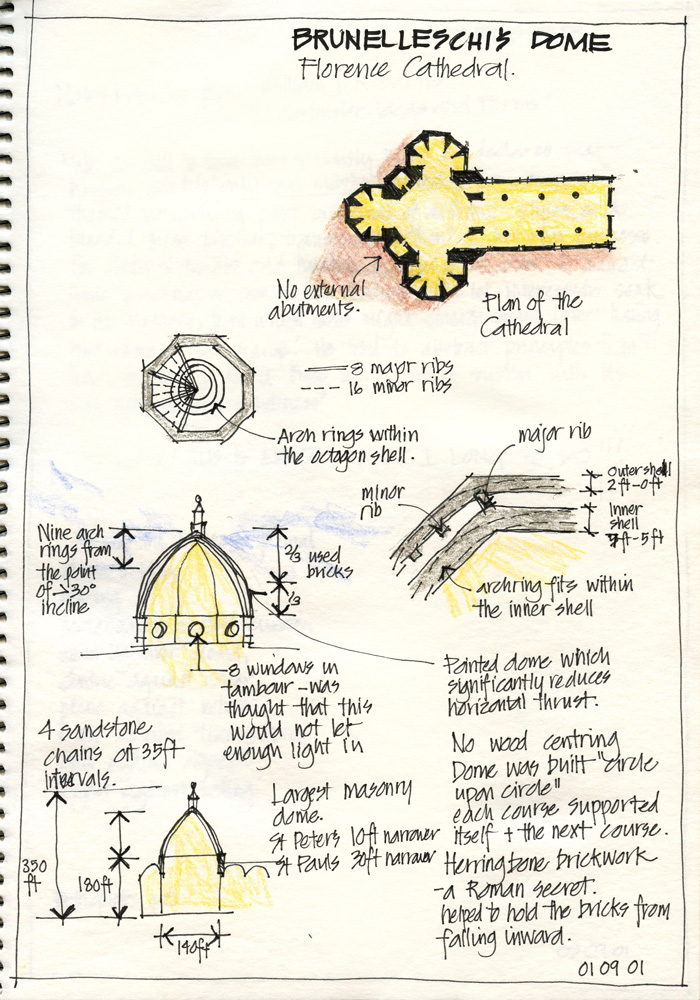 BRUNELLESCHI'S DOME
Florence Cathedral.
No external
abutments.
Plan of the
Cathedral
8 major ribs
16 minor ribs
Arch rings within
the octagon shell.
major rib
minor
rib
Outer shell
2ft-0ft
Inner
shell
7ft-5ft
archring fits within
the inner shell
Nine arch
rings from
the point
of 30°
incline
2/3 used
bricks
1/3
8 windows in
tambour - was
thought that this
would not let
enough light in
Pointed dome which
significantly reduces
horizontal thrust.
4 sandstone
chains at 35ft
intervals.
350
ft
180ft
140ft
Largest masonry
dome.
St Peter's 10ft narrower
St Pauls 30ft narrower
No wood centring
Dome was built "circle
upon circle"
each course supported
itself + the next course.
Herringbone brickwork
- a Roman secret.
helped to hold the bricks from
falling inward.
01 09 01